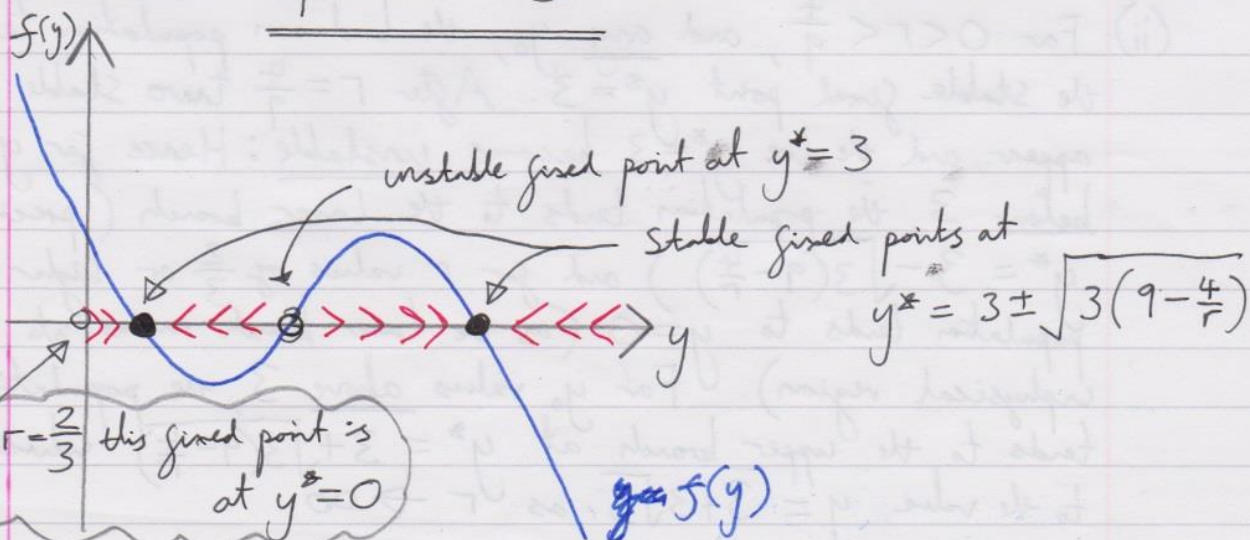 f(y)
unstable fixed point at y* = 3
Stable fixed points at
y* = 3 ± √3(9 - 4/r)
0
y
r = 2/3 this fixed point is
at y* = 0
f(y)